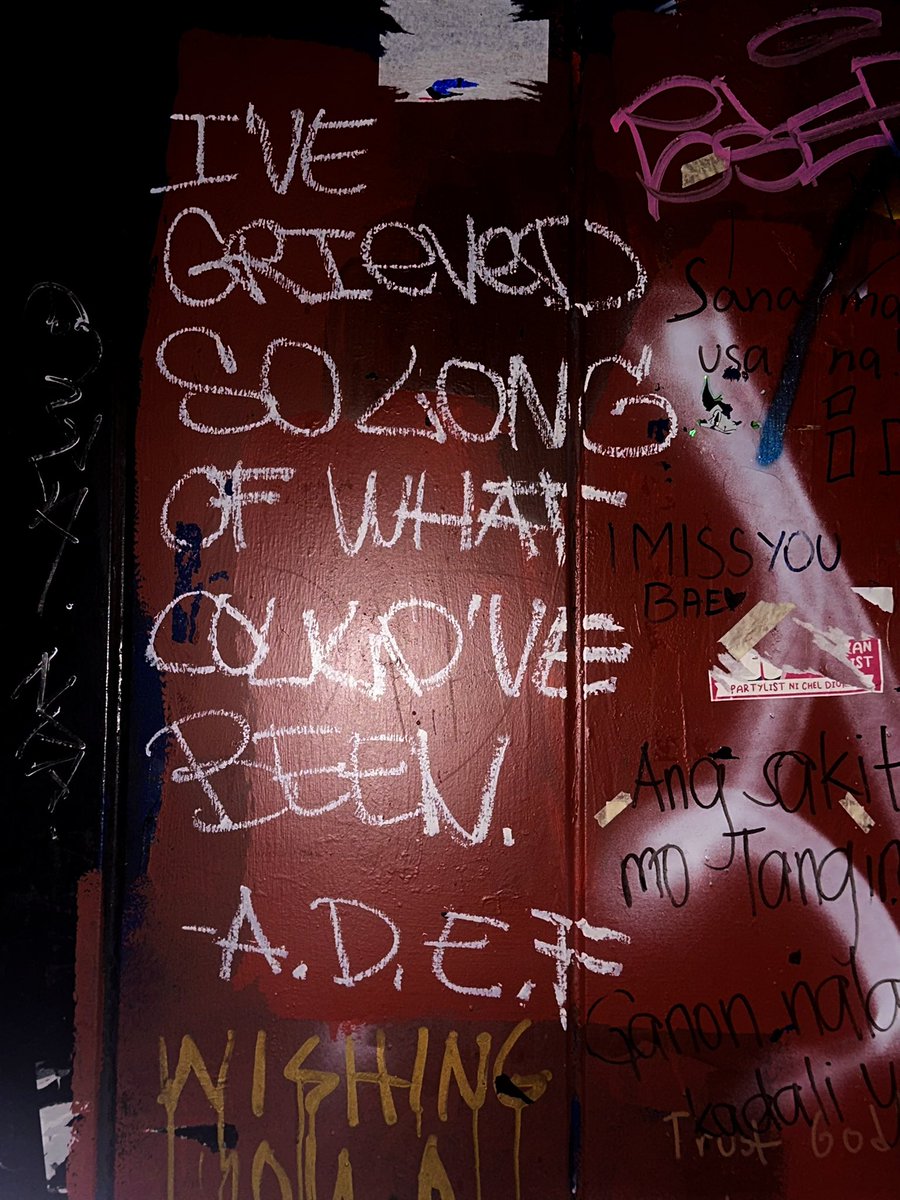 I'VE
GRIEVED
SO LONG
OF WHAT
COULD'VE
BEEN.
-A.D.E.F
WISHING
Sana
usa na
I MISS YOU
BAE♥
PARTYLIST NI CHEL DIOK
Ang sakit
mo
Ganon nala
kadali
Trust God